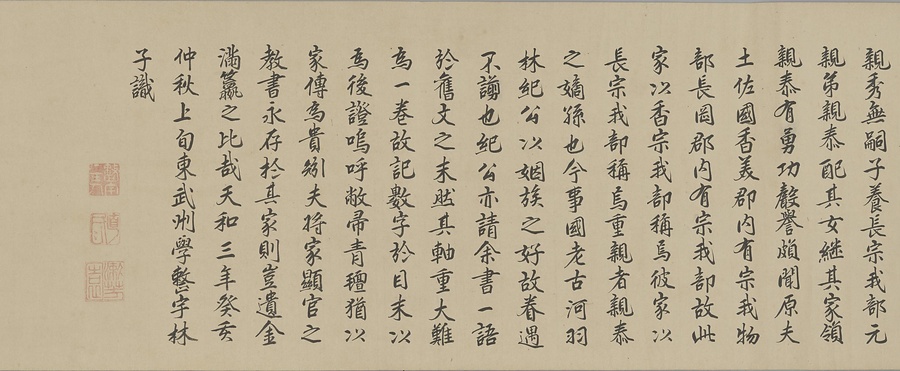 親秀無嗣子養長宗我部元
親弟親泰配其女継其家領
親泰有勇功聲譽頗聞原夫
土佐國香美郡内有宗我物
部長岡郡内有宗我部故此
家以香宗我部稱焉彼家以
長宗我部稱焉重親者親泰
之嫡孫也今事國老古河羽
林紀公以姻族之好故眷遇
不諼也紀公亦請余書一語
於舊文之末然其軸重大難
為一卷故記數字於目末以
為後證嗚呼敝帚青氊猶以
家傳為貴矧夫将家顯官之
教書永存於其家則豈遺金
滿籯之比哉天和三年癸亥
仲秋上旬東武州學整宇林
子識